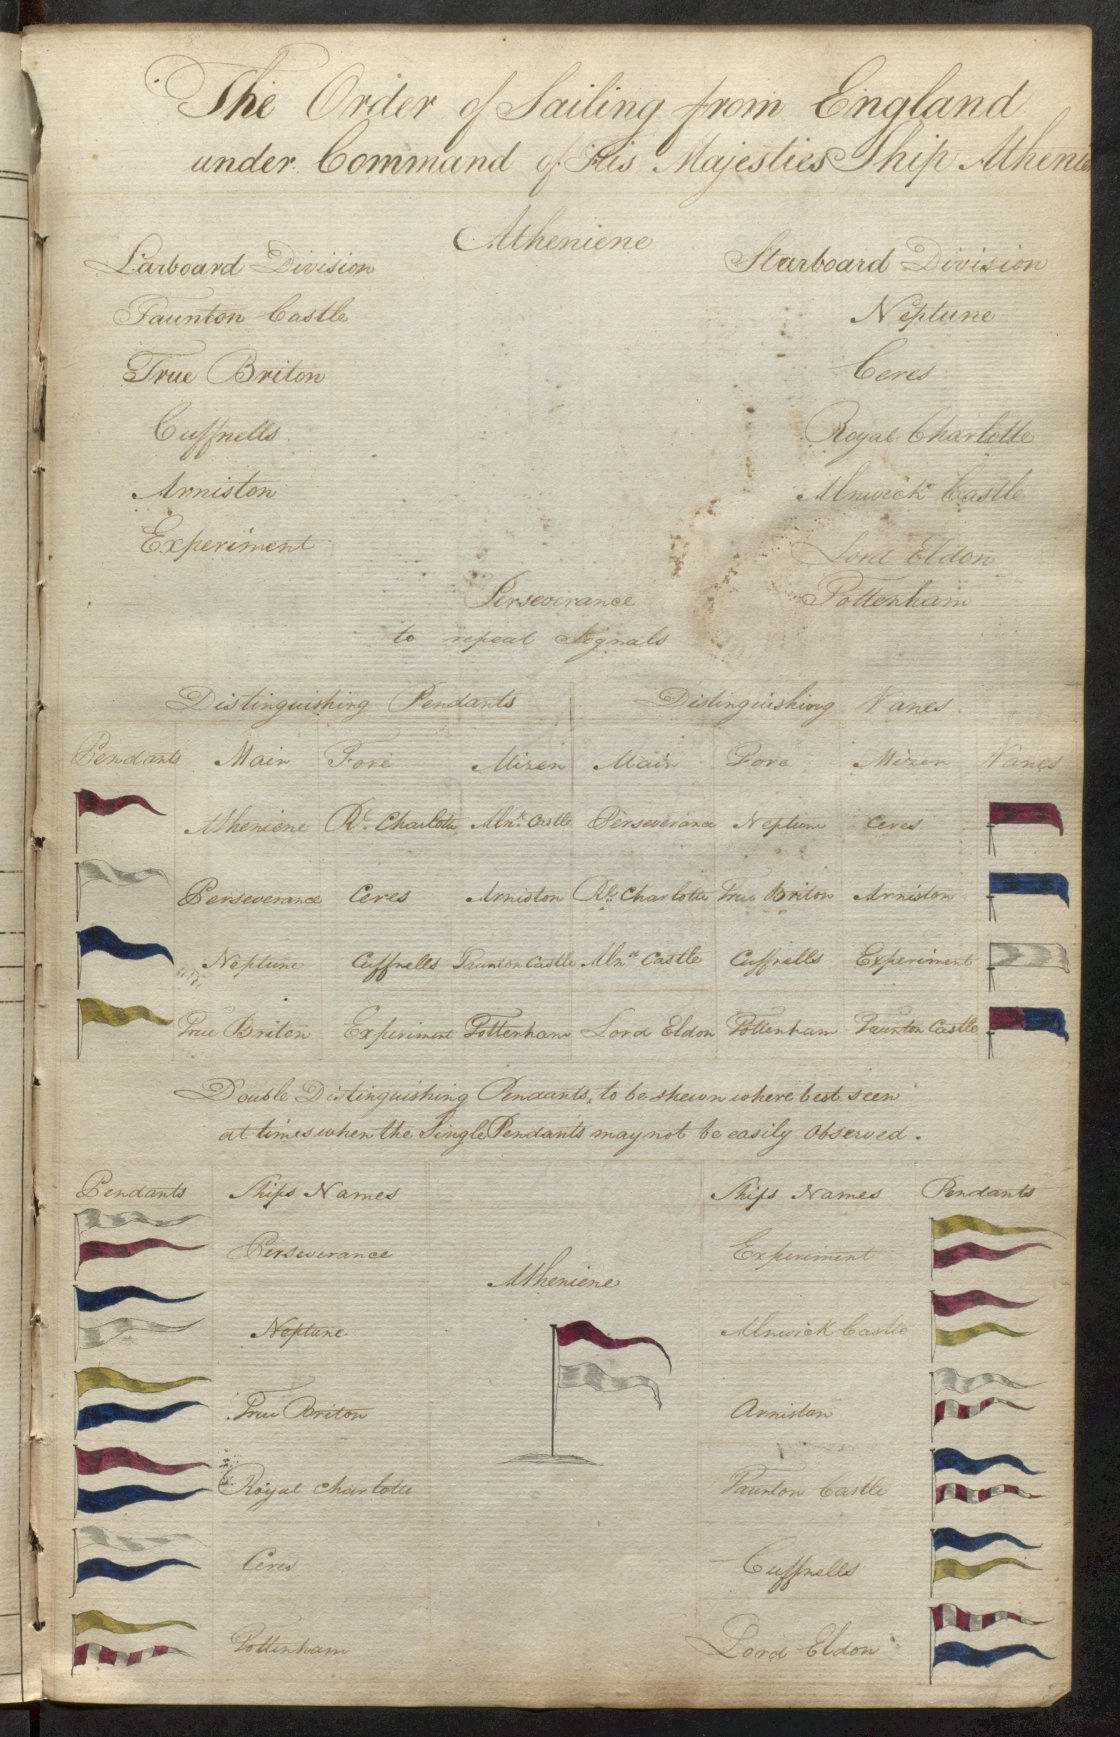 The Order of Sailing from England
under Command of His Majesties Ship Athenie
Atheniene
Larboard Division
Starboard Division
Taunton Castle
Neptune
True Briton
Ceres
Cuffnells
Royal Charlotte
Arniston
Alnwick Castle
Experiment
Lord Eldon
Perseverance
Tottenham
to repeat Signals
Distinguishing Pendants
Distinguishing Vanes
Pendants Main Fore Mizen Main Fore Mizen Vanes
Atheniene Rl. Charlotte Alnk. Castle Perseverance Neptune Ceres
Perseverance Ceres Arniston Rl. Charlotte True Briton Arniston
Neptune Cuffnells Taunton Castle Alnk. Castle Cuffnells Experiment
True Briton Experiment Tottenham Lord Eldon Tottenham Taunton Castle
Double Distinguishing Pendants, to be shewn where best seen
at times when the Single Pendants may not be easily observed.
Pendants Ships Names Ships Names Pendants
Perseverance
Experiment
Atheniene
Neptune
Alnwick Castle
True Briton
Arniston
Royal Charlotte
Taunton Castle
Ceres
Cuffnells
Tottenham
Lord Eldon